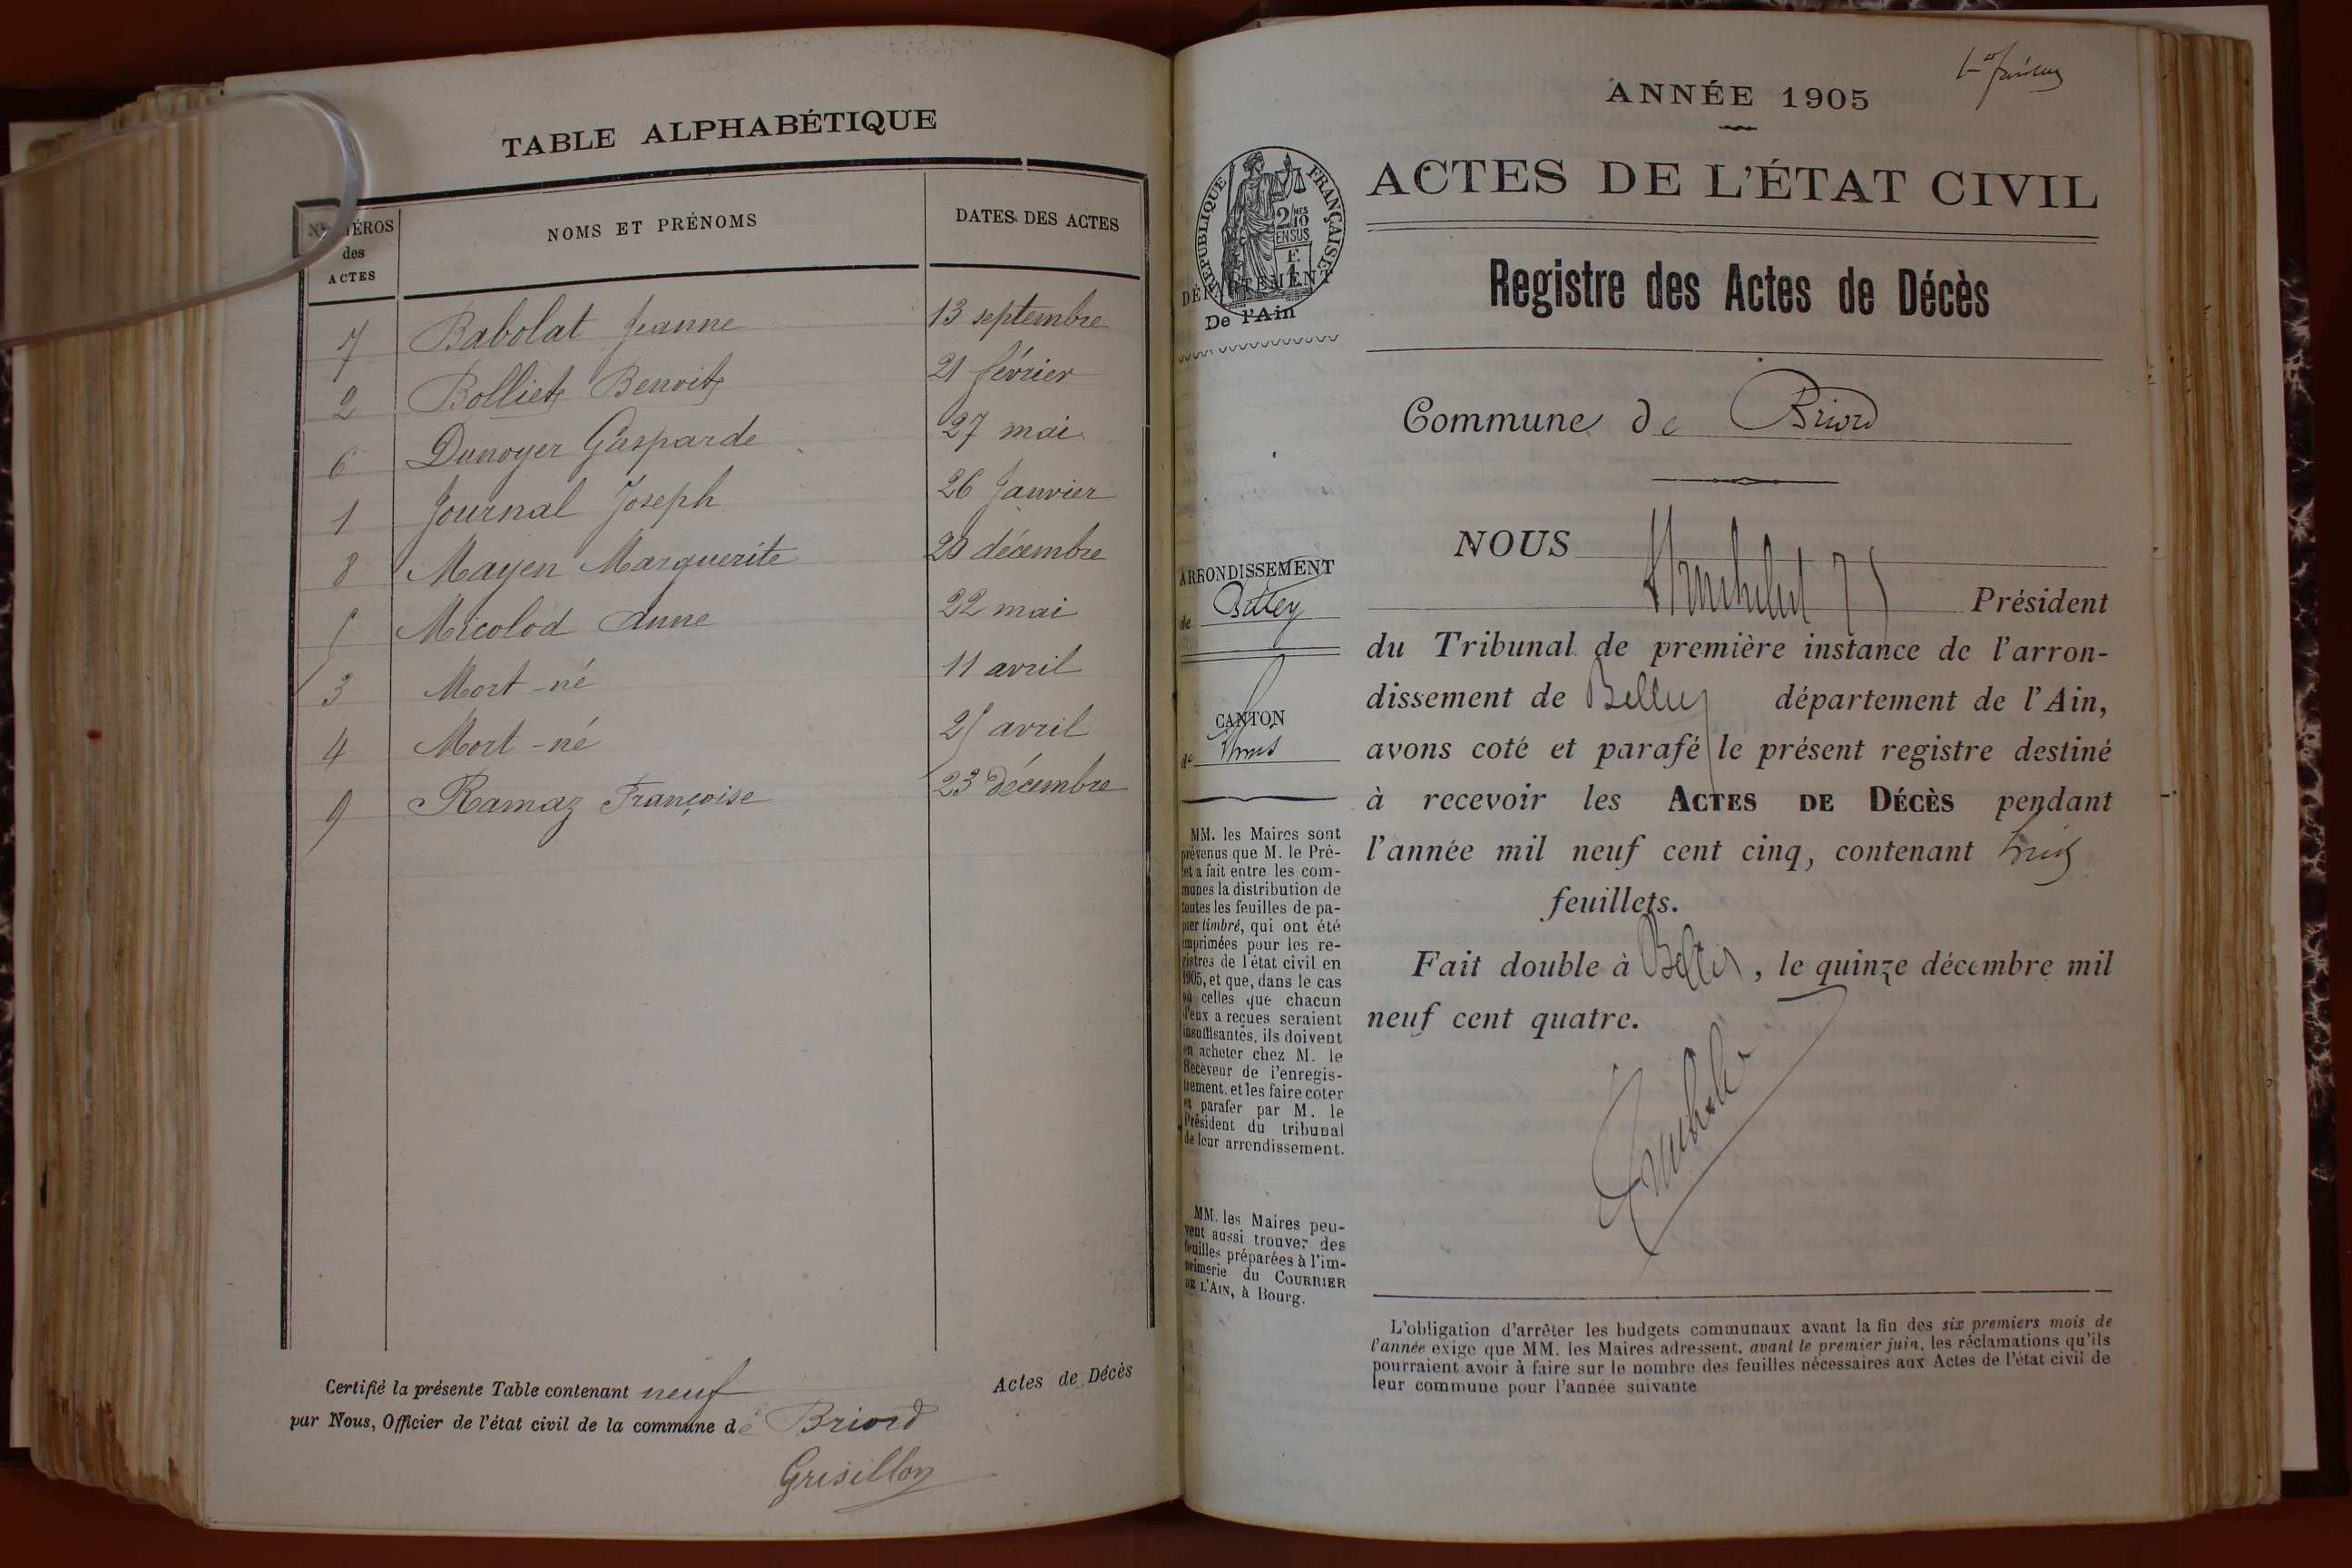 TABLE ALPHABÉTIQUE
NUMÉROS
des
ACTES
NOMS ET PRÉNOMS
DATES DES ACTES
7 Babolat Jeanne 13 septembre
2 Bolliet Benoit 21 février
6 Dunoyer Gasparde 27 mai
1 Journal Joseph 26 Janvier
8 Mayen Marguerite 20 décembre
5 Micolod Anne 22 mai
3 Mort-né 11 avril
4 Mort-né 25 avril
9 Ramaz Françoise 23 Décembre
Certifié la présente Table contenant neuf Actes de Décès
par Nous, Officier de l'état civil de la commune de Briord
Grisillon
ANNÉE 1905
RÉPUBLIQUE FRANÇAISE
2/10MES
EN SUS
DÉPARTEMENT
De l'Ain
ACTES DE L'ÉTAT CIVIL
Registre des Actes de Décès
Commune de Briord
ARRONDISSEMENT
de Belley
CANTON
de
MM. les Maires sont
prévenus que M. le Pré-
fet a fait entre les com-
munes la distribution de
toutes les feuilles de pa-
pier timbré, qui ont été
imprimées pour les re-
gistres de l'état civil en
1905, et que, dans le cas
où celles que chacun
d'eux a reçues seraient
insuffisantes, ils doivent
en acheter chez M. le
Receveur de l'enregis-
trement, et les faire coter
et parafer par M. le
Président du tribunal
de leur arrondissement.
MM. les Maires peu-
vent aussi trouver des
feuilles préparées à l'im-
primerie du COURRIER
DE L'AIN, à Bourg.
NOUS
Président
du Tribunal de première instance de l'arron-
dissement de Belley département de l'Ain,
avons coté et parafé le présent registre destiné
à recevoir les ACTES DE DÉCÈS pendant
l'année mil neuf cent cinq, contenant
feuillets.
Fait double à Belley, le quinze décembre mil
neuf cent quatre.
L'obligation d'arrêter les budgets communaux avant la fin des six premiers mois de
l'année exige que MM. les Maires adressent, avant le premier juin, les réclamations qu'ils
pourraient avoir à faire sur le nombre des feuilles nécessaires aux Actes de l'état civil de
leur commune pour l'année suivante